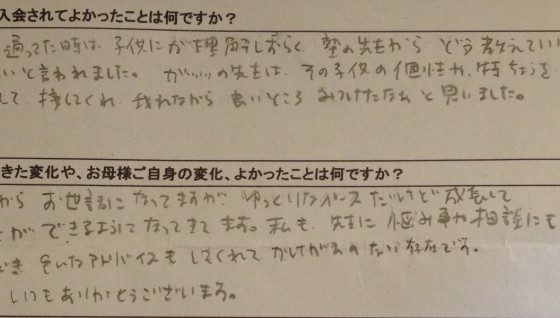 入会されてよかったことは何ですか？
通ってた時は、子供にが理解しずらく、塾の先生から どう教えてい
いと言われました。 がいいの先生は、その子供の個性や、特ちょうを
して、接してくれ、我れながら 良いところ みつけたなぁと思いました。
きた変化や、お母様ご自身の変化、よかったことは何ですか？
から お世話になってますが、ゆっくりなペースだけど 成長して
とが できるようになってきてます。私も、先生に 悩み事や相談にも
だき 色んなアドバイスも してくれて かけがえのない存在です。
いつもありがとうございます。